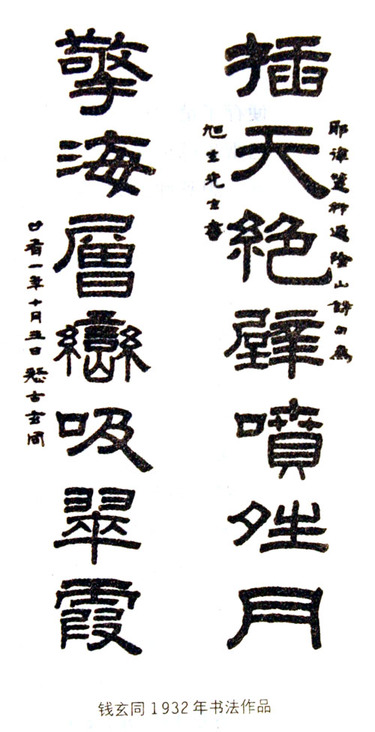 插天絕壁噴夝月
耶律楚材過陰山詩句為
旭生先生書
擎海層巒吸翠霞
廿有一年十月五日 疑古玄同
钱玄同1932年书法作品